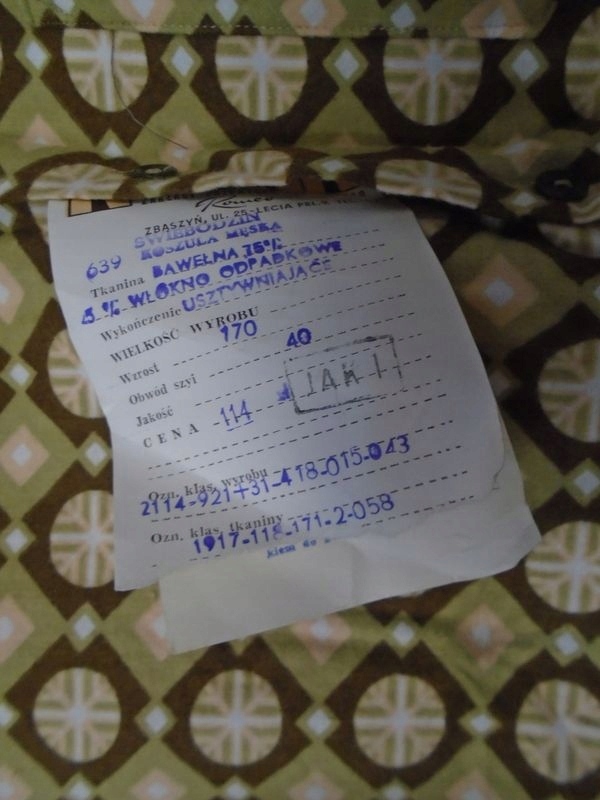 ZBĄSZYŃ, UL. 25-LECIA PRL
ŚWIEBODZIN
639 KOSZULA MĘSKA
Tkanina BAWEŁNA 75%
5 % WŁÓKNO ODPADKOWE
Wykończenie USZTYWNIAJĄCE
WIELKOŚĆ WYROBU
Wzrost 170
Obwód szyi 40
Jakość JAK I
CENA 114
Ozn. klas. wyrobu
2114-921+31-418-015-043
Ozn. klas. tkaniny
1917-118-171-2-058